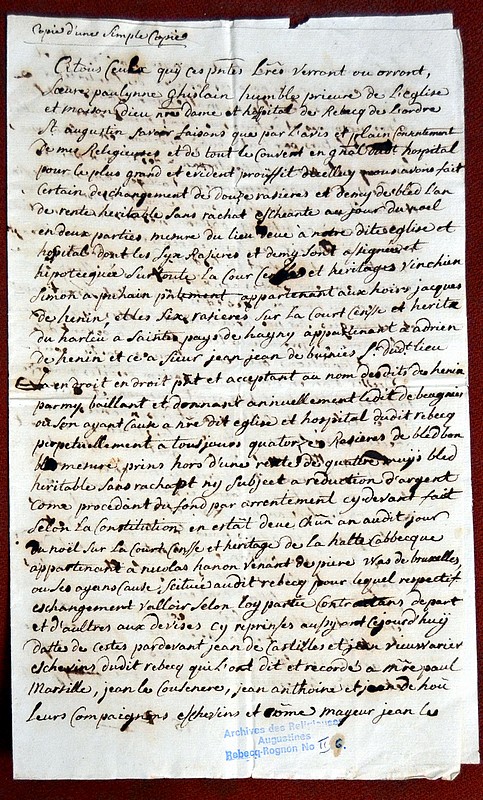 Copie d'une simple Copie
Citous Ceulx quÿ ces pntes Lres verront ou orront,
Sœure paulynne Ghislain humble prieure de L'eglise
et maison dieu nre Dame et hôpital de Rebecq de Lordre
St augustin savoir faisons que par L'avis et plain Consentement
de mes Religieuses et de tout le Couvent en gñal dudt hospital
pour le plus grand et evident prouffit dicelluy nous avons fait
Certain deschangement de douze rasieres et demy de bled L'an
de rente heritable sans rachat escheante au jour du noel
en deux parties, mesure du lieu deue a notre dite eglise et
hôpital dont les Syx Rasieres et demy sont assignée et
hipotecquée sur toute La Cour Censse et heritages Vinchien
Simon a pntement appartenant aux hoirs jacques
de henin et les six rasieres sur La Court Censse et herite
du harleu a Saintes pays de haynÿ appartenant a adrien
de henin et ce a Sieur jean jean de Sr dudt lieu
en droit en droit pnt et acceptant au nom desdits de henin
parmy baillant et donnant annuellement Ledit de
ou son ayant Cause a nre dit eglise et hospital dudit rebecq
perpetuellement a tousjours quatorze Rasieres de bled bon
mesure, prins hors d'une rente de quattre muijs bled
heritable sans rachapt nÿ subject a reduction d'argent
Come procedant du fond par arrentement cy devant fait
selon La Constitution en estat deue chun an audit jour
du noël sur La Court Censse et heritage de la halte Cabbecque
appartenant a nicolas hanon venant de piere was de bruxelles
ou ses ayans Cause, scituée audit rebecq pour lequel respectif
eschangement valloir selon Loy partie Contractans de part
et d'aultres aux devises cy reprinses aujourd'huij
datte de cestes pardevant jean de Castilles et jean
eschevins dudit rebecq qui L'ont dit et recordé a mre paul
Marsille, jean le Cousenere, jean anthoine et jean de hoü
Leurs Compaignons eschevins et Come mayeur jean le
Archives des Religieuses
Augustines
Rebecq-Rognon No II 6.